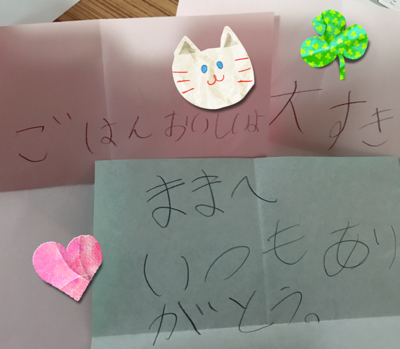 ごはんおいしいよ大すき
ままへ
いつもあり
がとう。